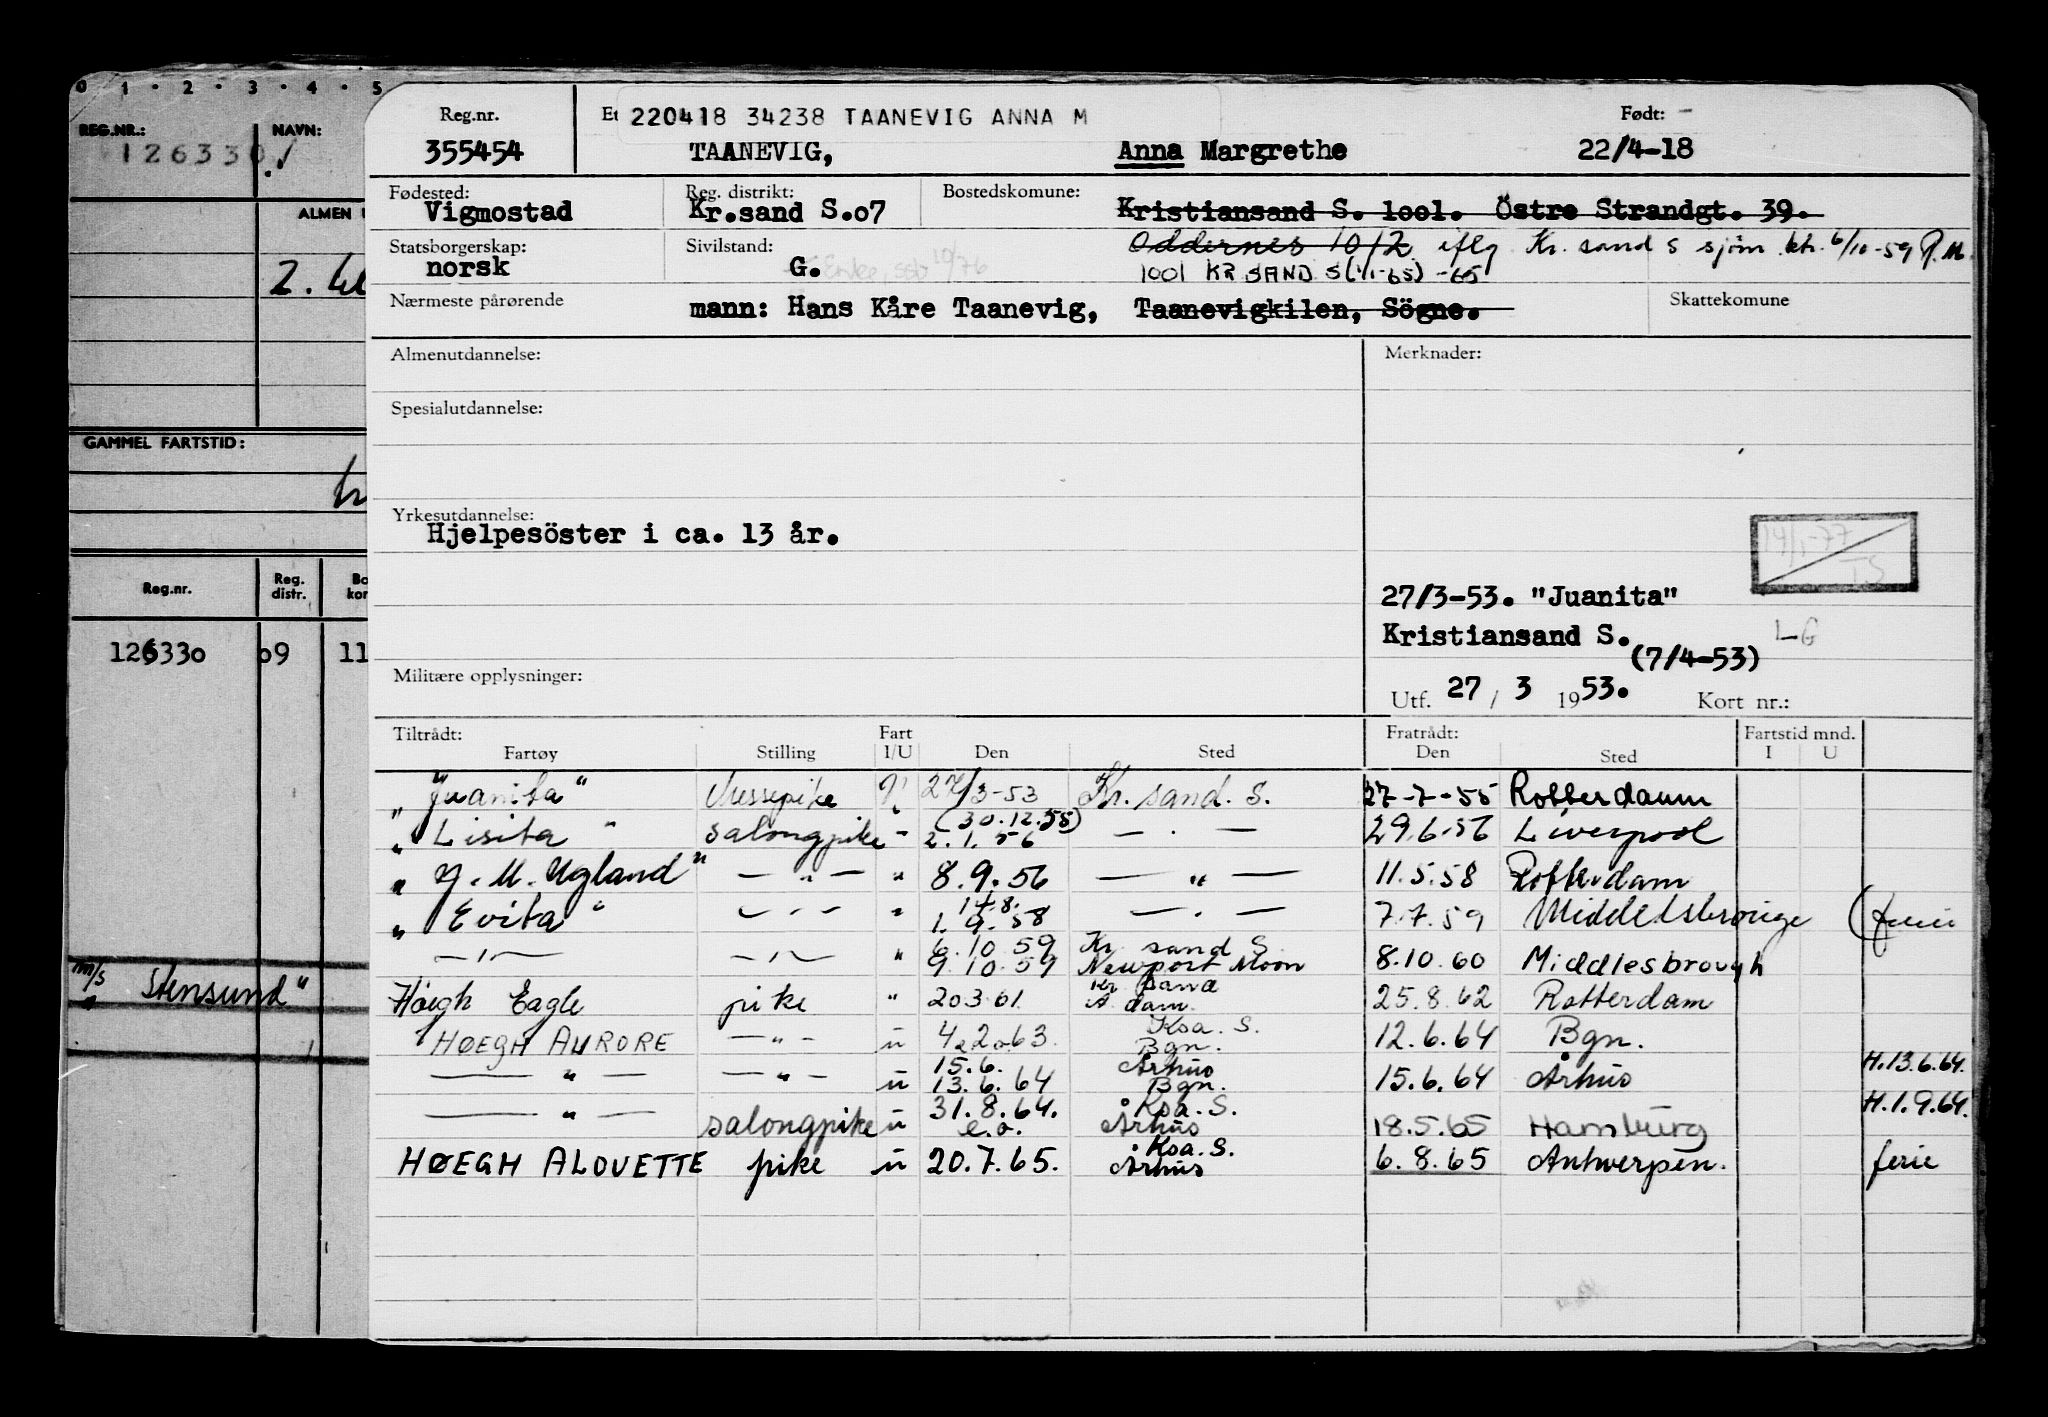 0 1 · 2 · 3 · 4 · 5
REG.NR.: NAVN:
126330
ALMEN
2.
GAMMEL FARTSTID:
Reg.nr. Reg. distr.
126330 o9 11
m/s Stensund"
Reg.nr. 220418 34238 TAANEVIG ANNA M Født:
355454 TAANEVIG, Anna Margrethe 22/4-18
Fødested: Reg. distrikt: Bostedskomune:
Vigmostad Kr.sand S.o7 Kristiansand S. 1001. Östre Strandgt. 39.
Statsborgerskap: Sivilstand: Oddernes 10/2 iflg Kr. sand S sjøm. ktr. 6/10-59
norsk G. Enke, ssb 10/76 1001 KR SAND S (1/1-65) -65
Nærmeste pårørende mann: Hans Kåre Taanevig, Taanevigkilen, Sögne. Skattekomune
Almenutdannelse: Merknader:
Spesialutdannelse:
Yrkesutdannelse:
Hjelpesöster i ca. 13 år.
14/1-77
TS
27/3-53. "Juanita"
Kristiansand S. LG
(7/4-53)
Militære opplysninger: Utf. 27 / 3 1953. Kort nr.:
Tiltrådt: Fart Fratrådt: Fartstid mnd.
Fartøy Stilling I/U Den Sted Den Sted I U
"Juanita" Messepike U 27/3-53 Kr. sand. S. 27-7-55 Rotterdam
(30.12.55)
"Lisita" salongpike - 2.1.56 — · — 29.6.56 Liverpool
"J. M. Ugland" — " — " 8.9.56 — " — 11.5.58 Rotterdam
14.8.
"Evita" — " — " 1.9.58 — · — 7.7.59 Middelsbrouge (ferie
6.10.59 Kr. sand S.
— " — — " — " 9.10.59 Newport Moon 8.10.60 Middlesbrough
Kr sand
Høegh Eagle pike " 20.3.61. A. dam. 25.8.62 Rotterdam
Ksa. S.
HØEGH AURORE — " — u 4.2.63. Bgn. 12.6.64 Bgn.
15.6. Århus H.13.6.64.
— " — — " — u 13.6.64 Bgn. 15.6.64 Århus
31.8.64. Ksa. S. H.1.9.64.
— " — salongpike u e.o. Århus 18.5.65 Hamburg
Ksa. S.
HØEGH ALOUETTE pike u 20.7.65. Århus 6.8.65 Antwerpen. ferie